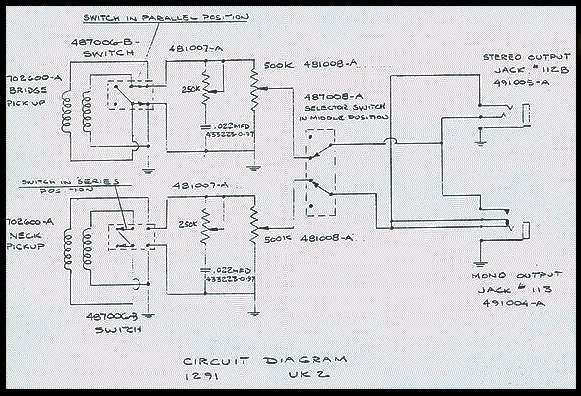 SWITCH IN PARALLEL POSITION
487006-B-
SWITCH
481007-A
500K 481008-A
STEREO OUTPUT
JACK #112B
491005-A
702600-A
BRIDGE
PICKUP
250K
487008-A
SELECTOR SWITCH
IN MIDDLE POSITION
.022MFD
433223-0.97
SWITCH IN SERIES
POSITION
481007-A
702600-A
NECK
PICKUP
250K
500K 481008-A
.022MFD
433223-0.97
MONO OUTPUT
JACK #113
491004-A
487006-B
SWITCH
CIRCUIT DIAGRAM
1291 UK2